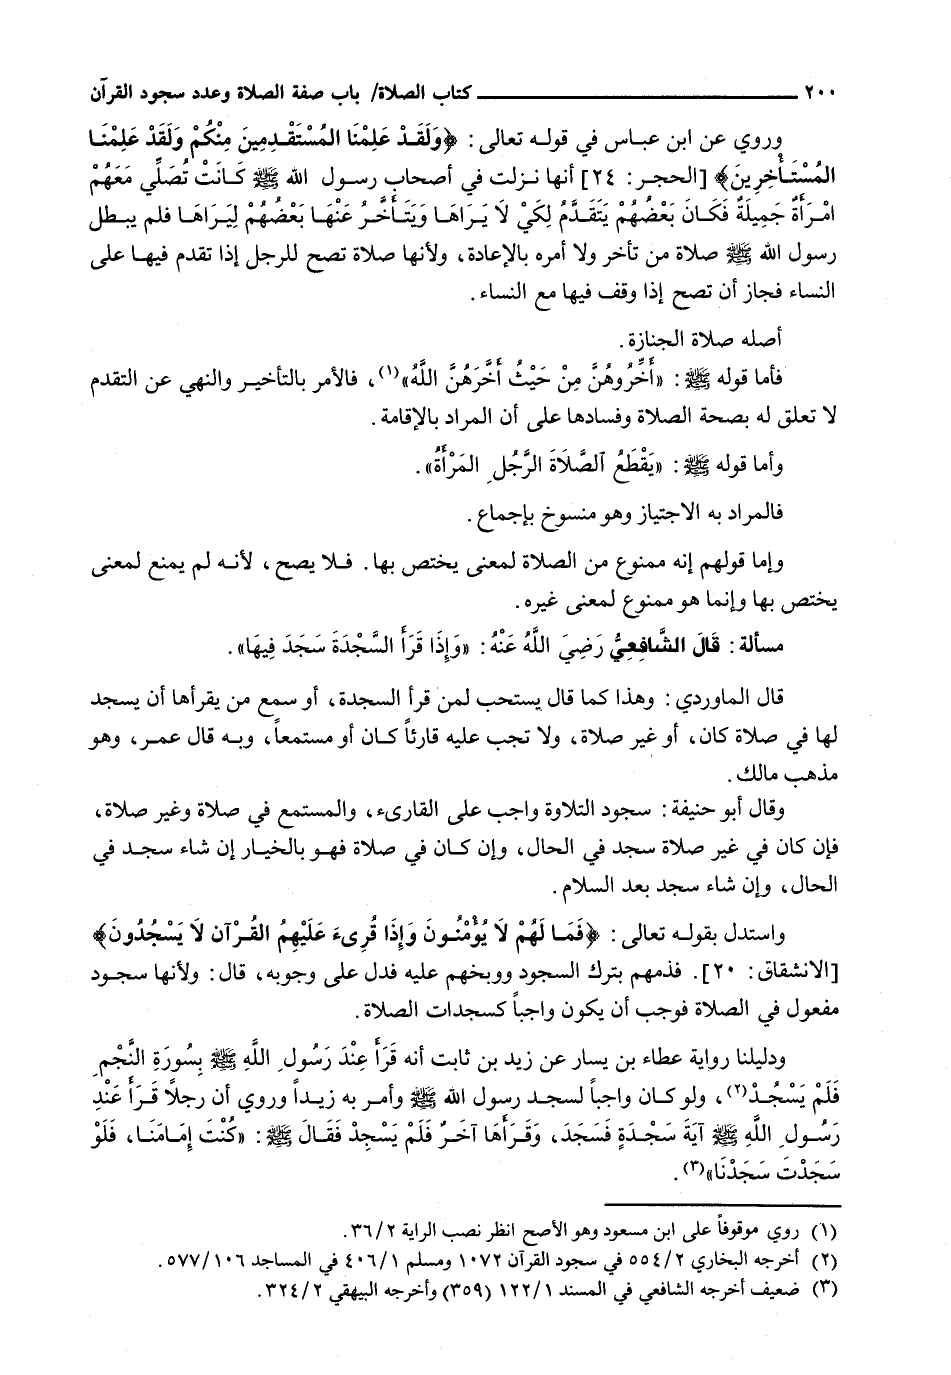 ٢٠٠ ــــــــــــــــــــــــ كتاب الصلاة/ باب صفة الصلاة وعدد سجود القرآن
وروي عن ابن عباس في قوله تعالى: ﴿وَلَقَدْ عَلِمْنَا المُسْتَقْدِمِينَ مِنْكُمْ وَلَقَدْ عَلِمْنَا
المُسْتَأْخِرِينَ﴾ [الحجر: ٢٤] أنها نزلت في أصحاب رسول الله ﷺ كَانَتْ تُصَلِّي مَعَهُمْ
امْرَأَةٌ جَمِيلَةٌ فَكَانَ بَعْضُهُمْ يَتَقَدَّمُ لِكَيْ لَا يَرَاهَا وَيَتَأَخَّرُ عَنْهَا بَعْضُهُمْ لِيَرَاهَا فلم يبطل
رسول الله ﷺ صلاة من تأخر ولا أمره بالإعادة، ولأنها صلاة تصح للرجل إذا تقدم فيها على
النساء فجاز أن تصح إذا وقف فيها مع النساء.
أصله صلاة الجنازة.
فأما قوله ﷺ: «أَخِّرُوهُنَّ مِنْ حَيْثُ أَخَّرَهُنَّ اللَّهُ»(١)، فالأمر بالتأخير والنهي عن التقدم
لا تعلق له بصحة الصلاة وفسادها على أن المراد بالإقامة.
وأما قوله ﷺ: «يَقْطَعُ الصَّلَاةَ الرَّجُلِ المَرْأَةُ».
فالمراد به الاجتياز وهو منسوخ بإجماع.
وإما قولهم إنه ممنوع من الصلاة لمعنى يختص بها. فلا يصح، لأنه لم يمنع لمعنى
يختص بها وإنما هو ممنوع لمعنى غيره.
مسألة: قَالَ الشَّافِعِيُّ رَضِيَ اللَّهُ عَنْهُ: «وَإِذَا قَرَأَ السَّجْدَةَ سَجَدَ فِيهَا».
قال الماوردي: وهذا كما قال يستحب لمن قرأ السجدة، أو سمع من يقرأها أن يسجد
لها في صلاة كان، أو غير صلاة، ولا تجب عليه قارئاً كان أو مستمعاً، وبه قال عمر، وهو
مذهب مالك.
وقال أبو حنيفة: سجود التلاوة واجب على القارىء، والمستمع في صلاة وغير صلاة،
فإن كان في غير صلاة سجد في الحال، وإن كان في صلاة فهو بالخيار إن شاء سجد في
الحال، وإن شاء سجد بعد السلام.
واستدل بقوله تعالى: ﴿فَمَا لَهُمْ لَا يُؤْمِنُونَ وَإِذَا قُرِىءَ عَلَيْهِمُ القُرْآن لَا يَسْجُدُونَ﴾
[الانشقاق: ٢٠]. فذمهم بترك السجود ووبخهم عليه فدل على وجوبه، قال: ولأنها سجود
مفعول في الصلاة فوجب أن يكون واجباً كسجدات الصلاة.
ودليلنا رواية عطاء بن يسار عن زيد بن ثابت أنه قَرَأَ عِنْدَ رَسُولِ اللَّهِ ﷺ بِسُورَةِ النَّجْمِ
فَلَمْ يَسْجُدْ(٢)، ولو كان واجباً لسجد رسول الله ﷺ وأمر به زيداً وروي أن رجلاً قَرَأَ عَنْدِ
رَسُولِ اللَّهِ ﷺ آيَةَ سَجْدَةٍ فَسَجَدَ، وَقَرَأَهَا آخَرُ فَلَمْ يَسْجِدْ فَقَالَ ﷺ: «كُنْتَ إِمَامَنَا، فَلَوْ
سَجَدْتَ سَجَدْنَا»(٣).
(١) روي موقوفاً على ابن مسعود وهو الأصح انظر نصب الراية ٣٦/٢.
(٢) أخرجه البخاري ٥٥٤/٢ في سجود القرآن ١٠٧٢ ومسلم ٤٠٦/١ في المساجد ٥٧٧/١٠٦.
(٣) ضعيف أخرجه الشافعي في المسند ١٢٢/١ (٣٥٩) وأخرجه البيهقي ٣٢٤/٢.